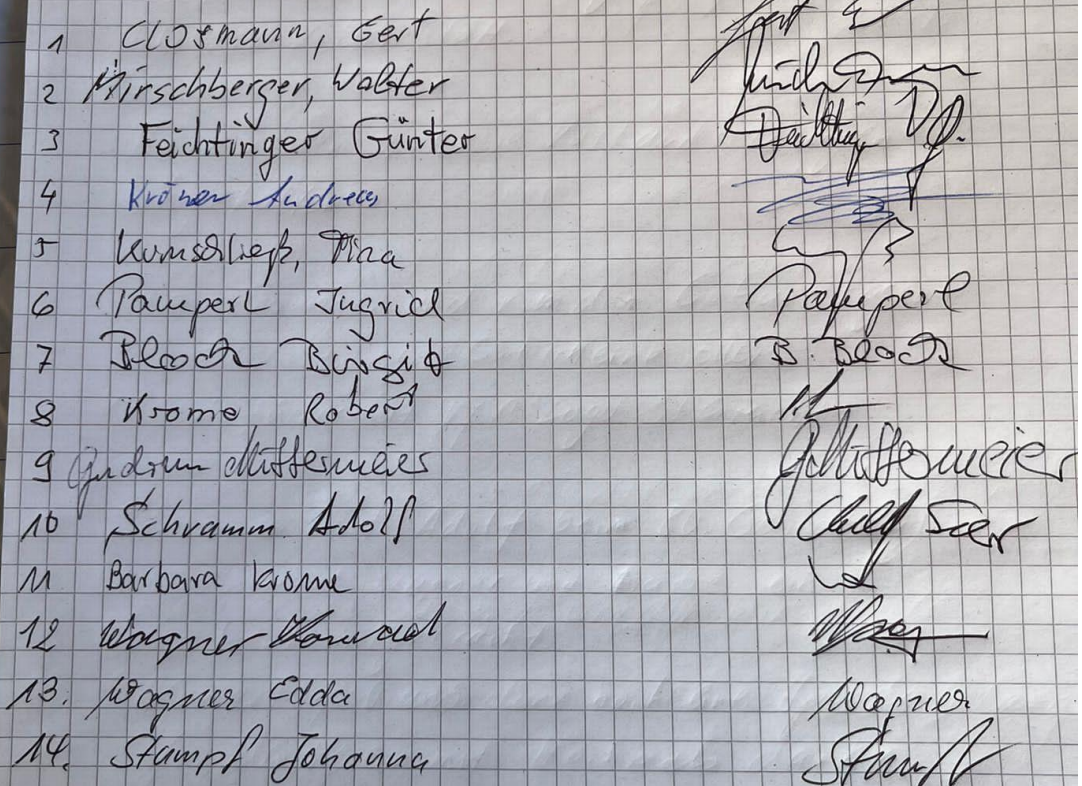 1 Closmann, Gert
2 Hirschberger, Walter
3 Feichtinger Günter
4 Kröner Andreas
5 Tina
6 Pamperl Ingrid Pamperl
7 Bloch Birgit B. Bloch
8 Krome Robert
9 Gudrun Mittermeier GMittermeier
10 Schramm Adolf
11 Barbara Krome
12 Wagner Konrad
13. Wagner Edda Wagner
14. Stumpf Johanna Stumpf